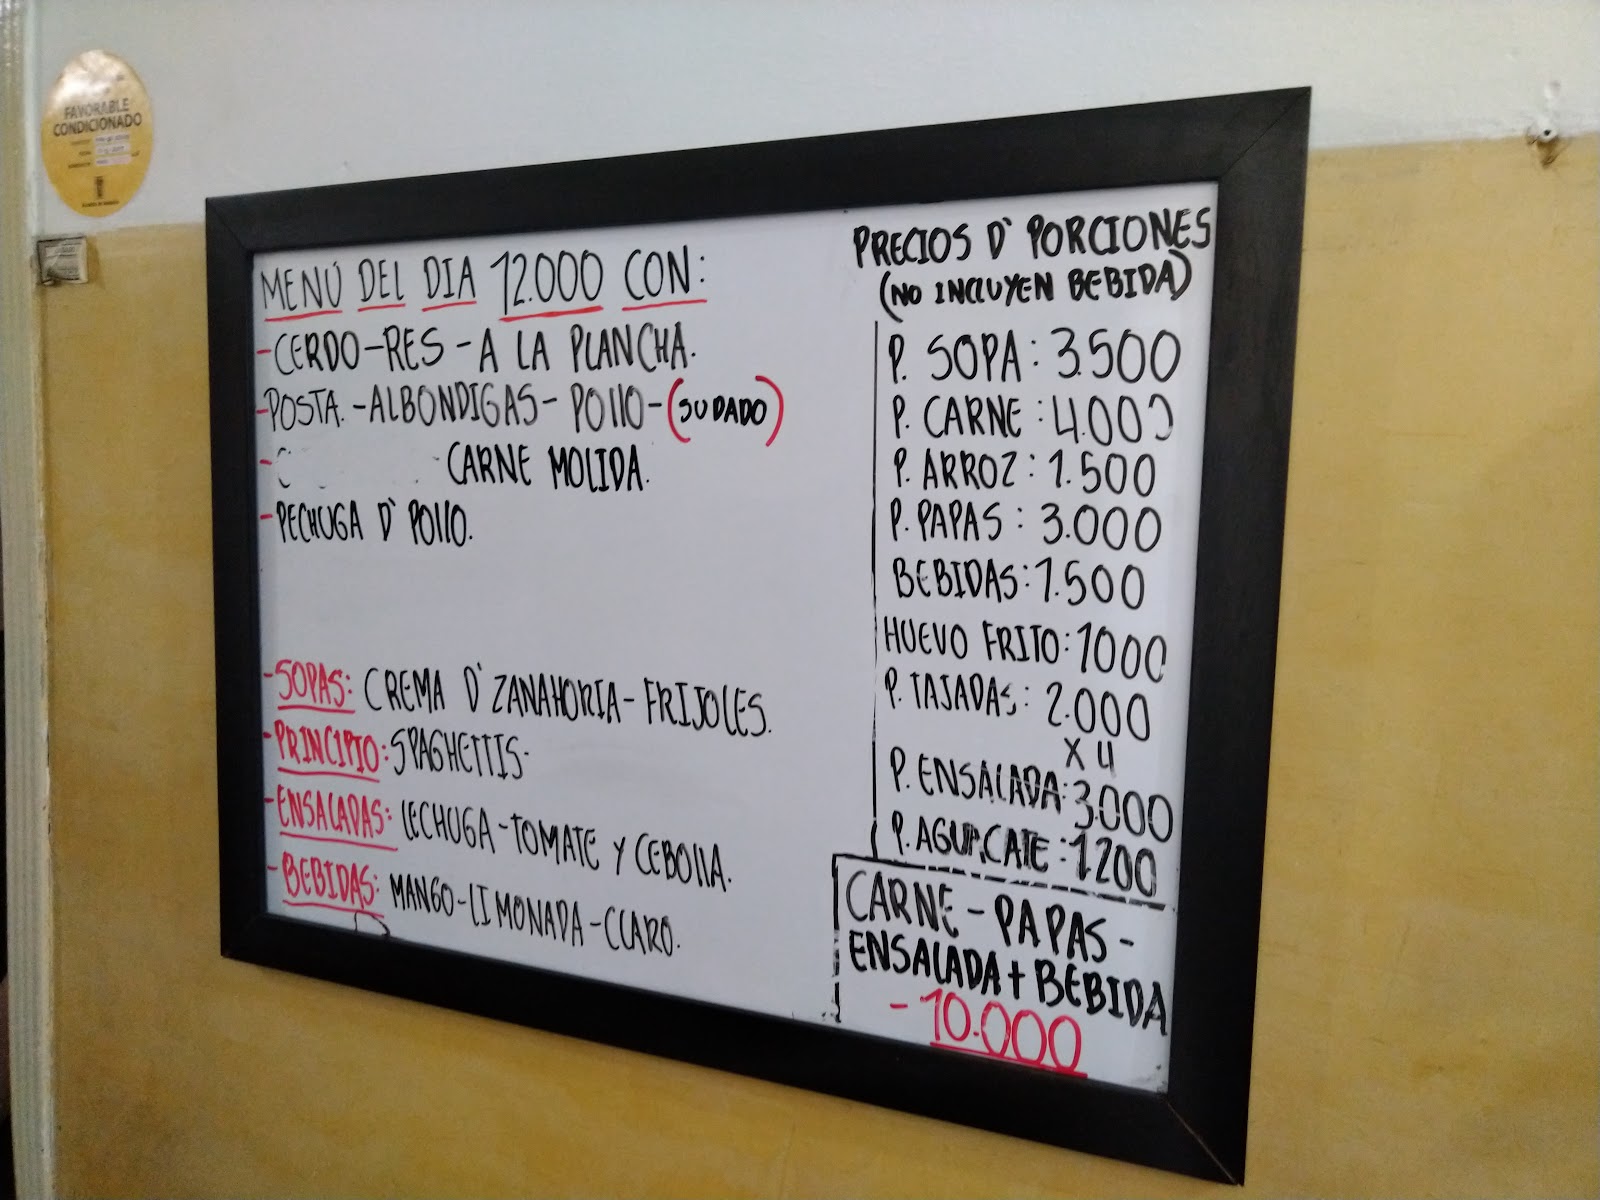 FAVORABLE
CONDICIONADO
MENÚ DEL DIA 12.000 CON:
-CERDO-RES-A LA PLANCHA.
-POSTA.-ALBONDIGAS-POLLO-(SUDADO)
- CARNE MOLIDA.
-PECHUGA D' POLLO.
-SOPAS: CREMA D' ZANAHORIA-FRIJOLES.
-PRINCIPIO: SPAGHETTIS-
-ENSALADAS: LECHUGA-TOMATE Y CEBOLLA.
-BEBIDAS: MANGO-LIMONADA-CLARO.
PRECIOS D' PORCIONES
(NO INCLUYEN BEBIDA)
P. SOPA: 3.500
P. CARNE: 4.000
P. ARROZ: 1.500
P. PAPAS: 3.000
BEBIDAS: 1.500
HUEVO FRITO: 1000
P. TAJADAS: 2.000
X 4
P. ENSALADA: 3.000
P. AGUACATE: 1.200
CARNE-PAPAS-
ENSALADA+BEBIDA
-10.000